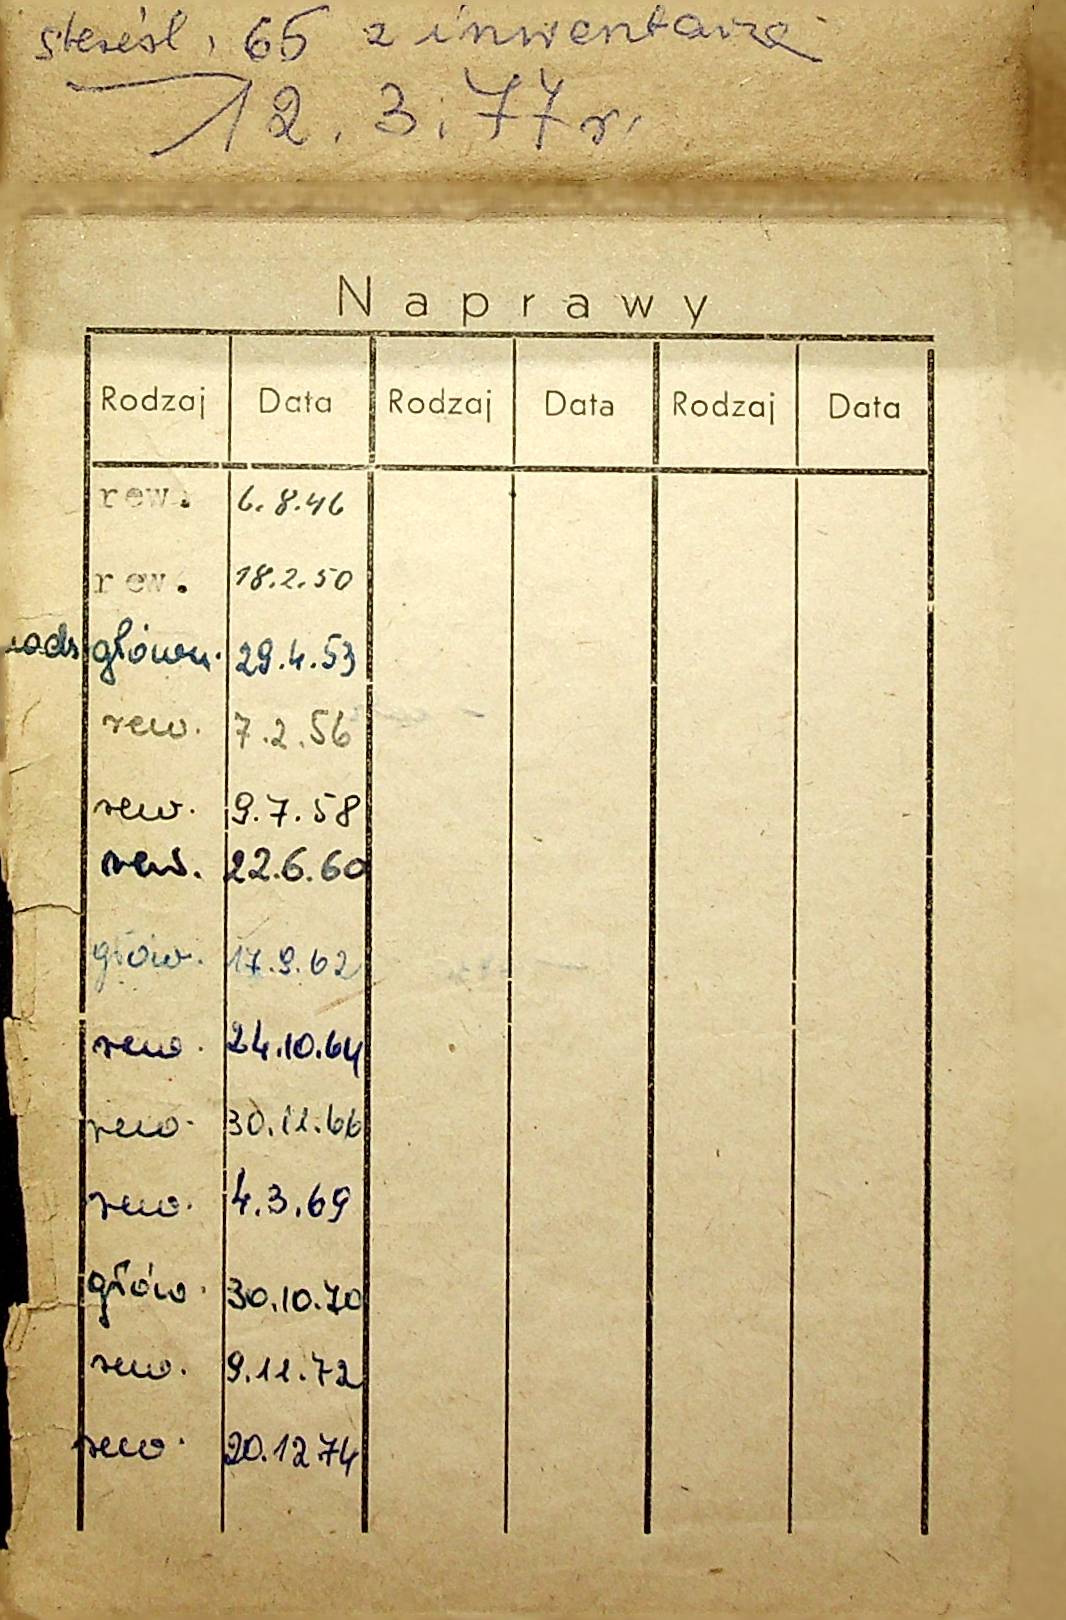 skreśl. z inwentarza
12.3.77r.
Naprawy
Rodzaj Data Rodzaj Data Rodzaj Data
rew. 6.8.46
rew. 18.2.50
główn. 29.4.53
rew. 7.2.56
rew. 9.7.58
rew. 22.6.60
głów. 17.9.62
rew. 24.10.64
rew. 30.11.66
rew. 4.3.69
głów. 30.10.70
rew. 9.11.72
rew. 20.12 74